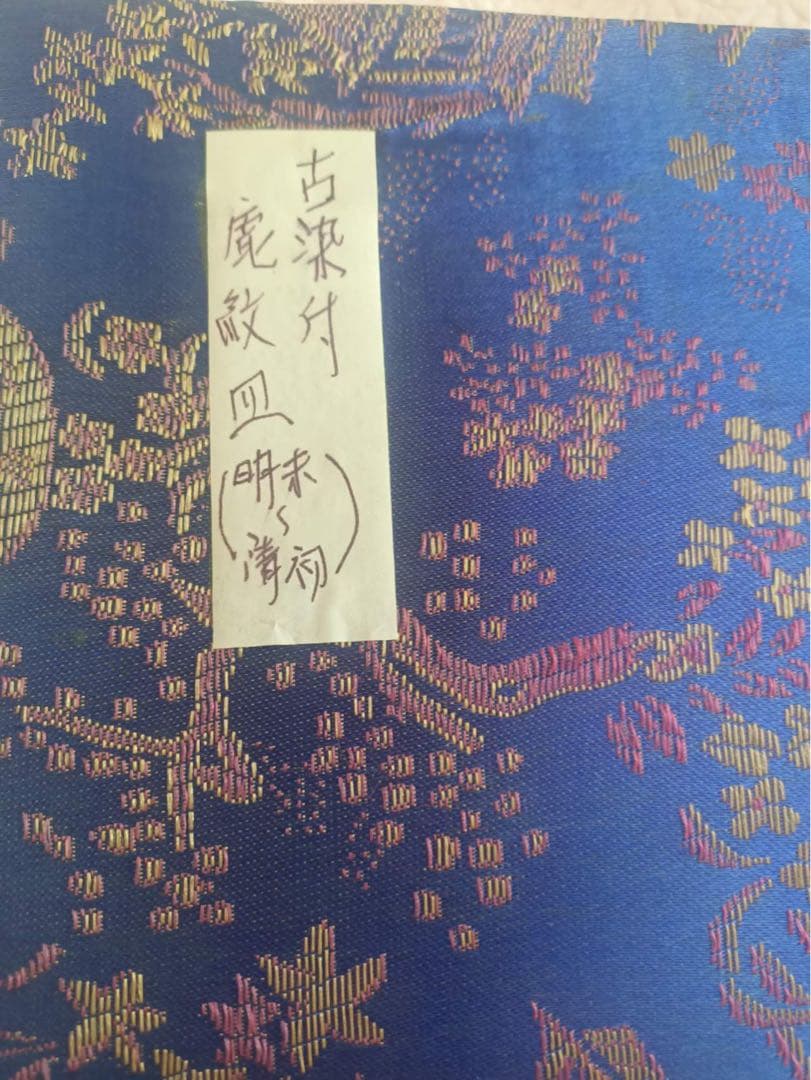 古染付
虎紋皿(明末〜清初)